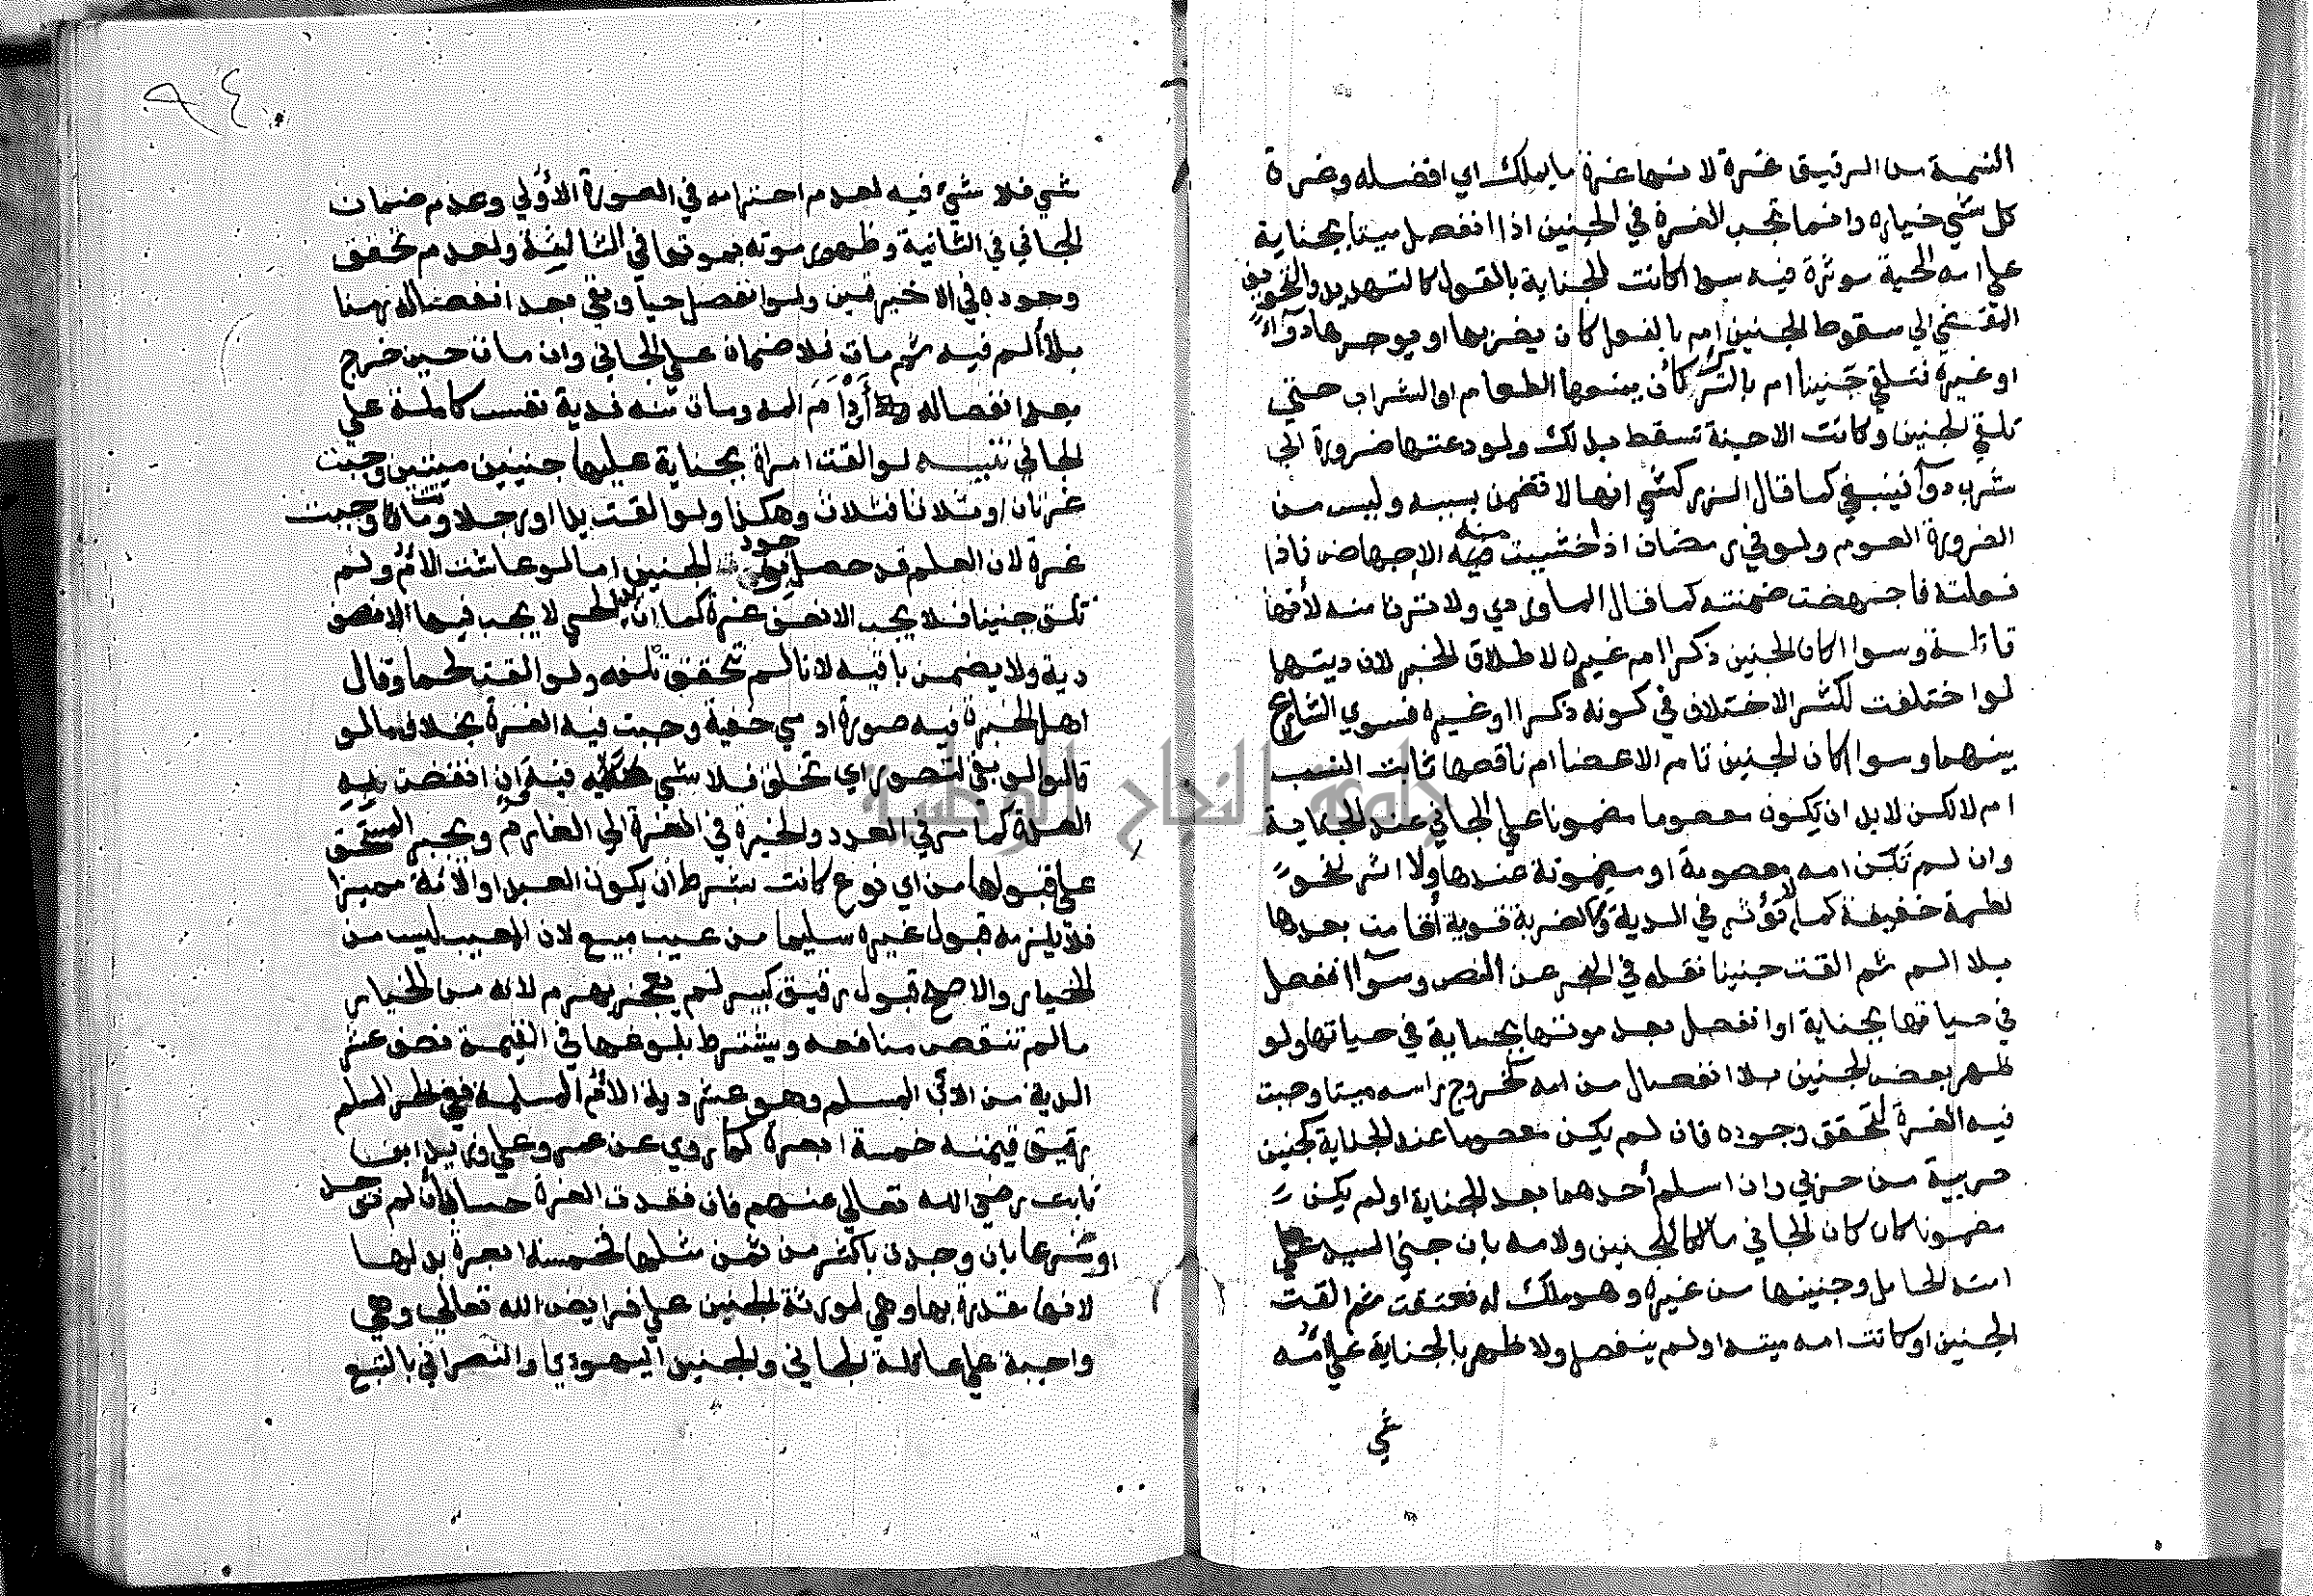 النسمة من الرقيق غرة لانها غرة ما يملك اي افضله وغرة
كل شي خياره وانما تجب الغرة في الجنين اذا انفصل ميتا بجناية
على امه الحية موثرة فيه سوا كانت الجناية بالقول كالتهديد والتخويف
المفضي الي سقوط الجنين ام بالفعل كان يضربها او يوجرها دواء
او غيره فتلقي جنينا ام بالترك كأن يمنعها الطعام او الشراب حتي
تلقي الجنين وكانت الاجنة تسقط بذلك ولو دعتها ضرورة الي
شرب دوآ فينبغي كما قال الزركشي انها لا تضمن بسببه وليس من
الضرورة الصوم ولو في رمضان اذا خشيت منه الاجهاض فاذا
فعلته فاجهضت ضمنته كما قال الماوردي ولا ترث منه لأنها
قاتلة وسوا اكان الجنين ذكرا ام غيره لاطلاق الخبر لان ديتها
لو اختلفت لكثر الاختلاف في كونه ذكرا او غيره فسوي الشارع
بينهما وسوا اكان الجنين تام الاعضا ام ناقصها ثابت النسب
ام لا لكن لابد ان يكون معصوما مضمونا علي الجاني عند الجناية
وان لم تكن امه معصومة او مضمونة عندها ولا اثر لنحو
لطمة خفيفة كما لا تؤثر في الدية ولا لضربة قوية أقامت بعدها
بلا الم ثم القت جنينا نقله في البحر عن النص وسوآ انفصل
في حياتها بجناية او انفصل بعد موتها بجناية في حياتها ولو
ظهر بعض الجنين بلا انفصال من امه كخروج راسه ميتا وجبت
فيه الغرة لتحقق وجوده فان لم يكن معصوما عند الجناية كجنين
حربية من حربي وان اسلم أحدهما بعد الجناية او لم يكن
مضمونا كان كان الجاني مالكا للجنين ولامه بان جني السيد علي
امته الحامل وجنينها من غيره وهو ملك له فعتقت ثم القت
الجنين او كانت امه ميتة او لم ينفصل ولا ظهر بالجناية علي أمه
شي
٩٤
شي فلا شيء فيه لعدم احترامه في الصورة الأولي وعدم ضمان
الجاني في الثانية وظهور موته بموتها في الثالثة ولعدم تحقق
وجوده في الاخيرتين ولو انفصل حيا وبقي بعد انفصاله زمنا
بلا ألم فيه ثم مات فلا ضمان علي الجاني وان مات حين خرج
بعد انفصاله او دام المه ومات منه فدية نفس كاملة علي
الجاني تنبيه لو القت امراة بجناية عليها جنينين ميتين وجبت
غرتان او ثلاثا فثلاث وهكذا ولو القت يدا او رجلا وماتت وجبت
غرة لان العلم قد حصل بوجود الجنين اما لو عاشت الأم ولم
تلق جنينا فلا يجب الا نصف غرة كما ان يد الحي لا يجب فيها الا نصف
دية ولا يضمن باقيه لانا لم نتحقق تلفه ولو القت لحما وقال
اهل الخبرة فيه صورة ادمي خفية وجبت فيه الغرة بخلاف ما لو
قالوا لو بقي لتصور اي تخلق فلا شي فيه وان انقضت به
العدة كما مر في العدد والخيرة في الغرة الي الغارم ويجبر المستحق
علي قبولها من اي نوع كانت بشرط ان يكون العبد او الأمة مميزا
فلا يلزمه قبول غيره سليما من عيب مبيع لان المعيب ليس من
الخيار والاصح قبول رقيق كبير لم يعجز بهرم لانه من الخيار
مالم تنقص منافعه ويشترط بلوغها في القيمة نصف عشر
الدية من الاب المسلم وهو عشر دية الأم المسلمة ففي الحر المسلم
رقيق قيمته خمسة ابعرة كما روي عن عمر وعلي وزيد ابن
ثابت رضي الله تعالي عنهم فان فقدت الغرة حسا بأن لم توجد
او شرعا بان وجدت باكثر من ثمن مثلها فخمسة ابعرة بدلها
لانها مقدرة بها وهي لورثة الجنين علي فرايض الله تعالي وهي
واجبة علي عاقلة الجاني والجنين اليهودي والنصراني بالتبع
جامعة النجاح الوطنية